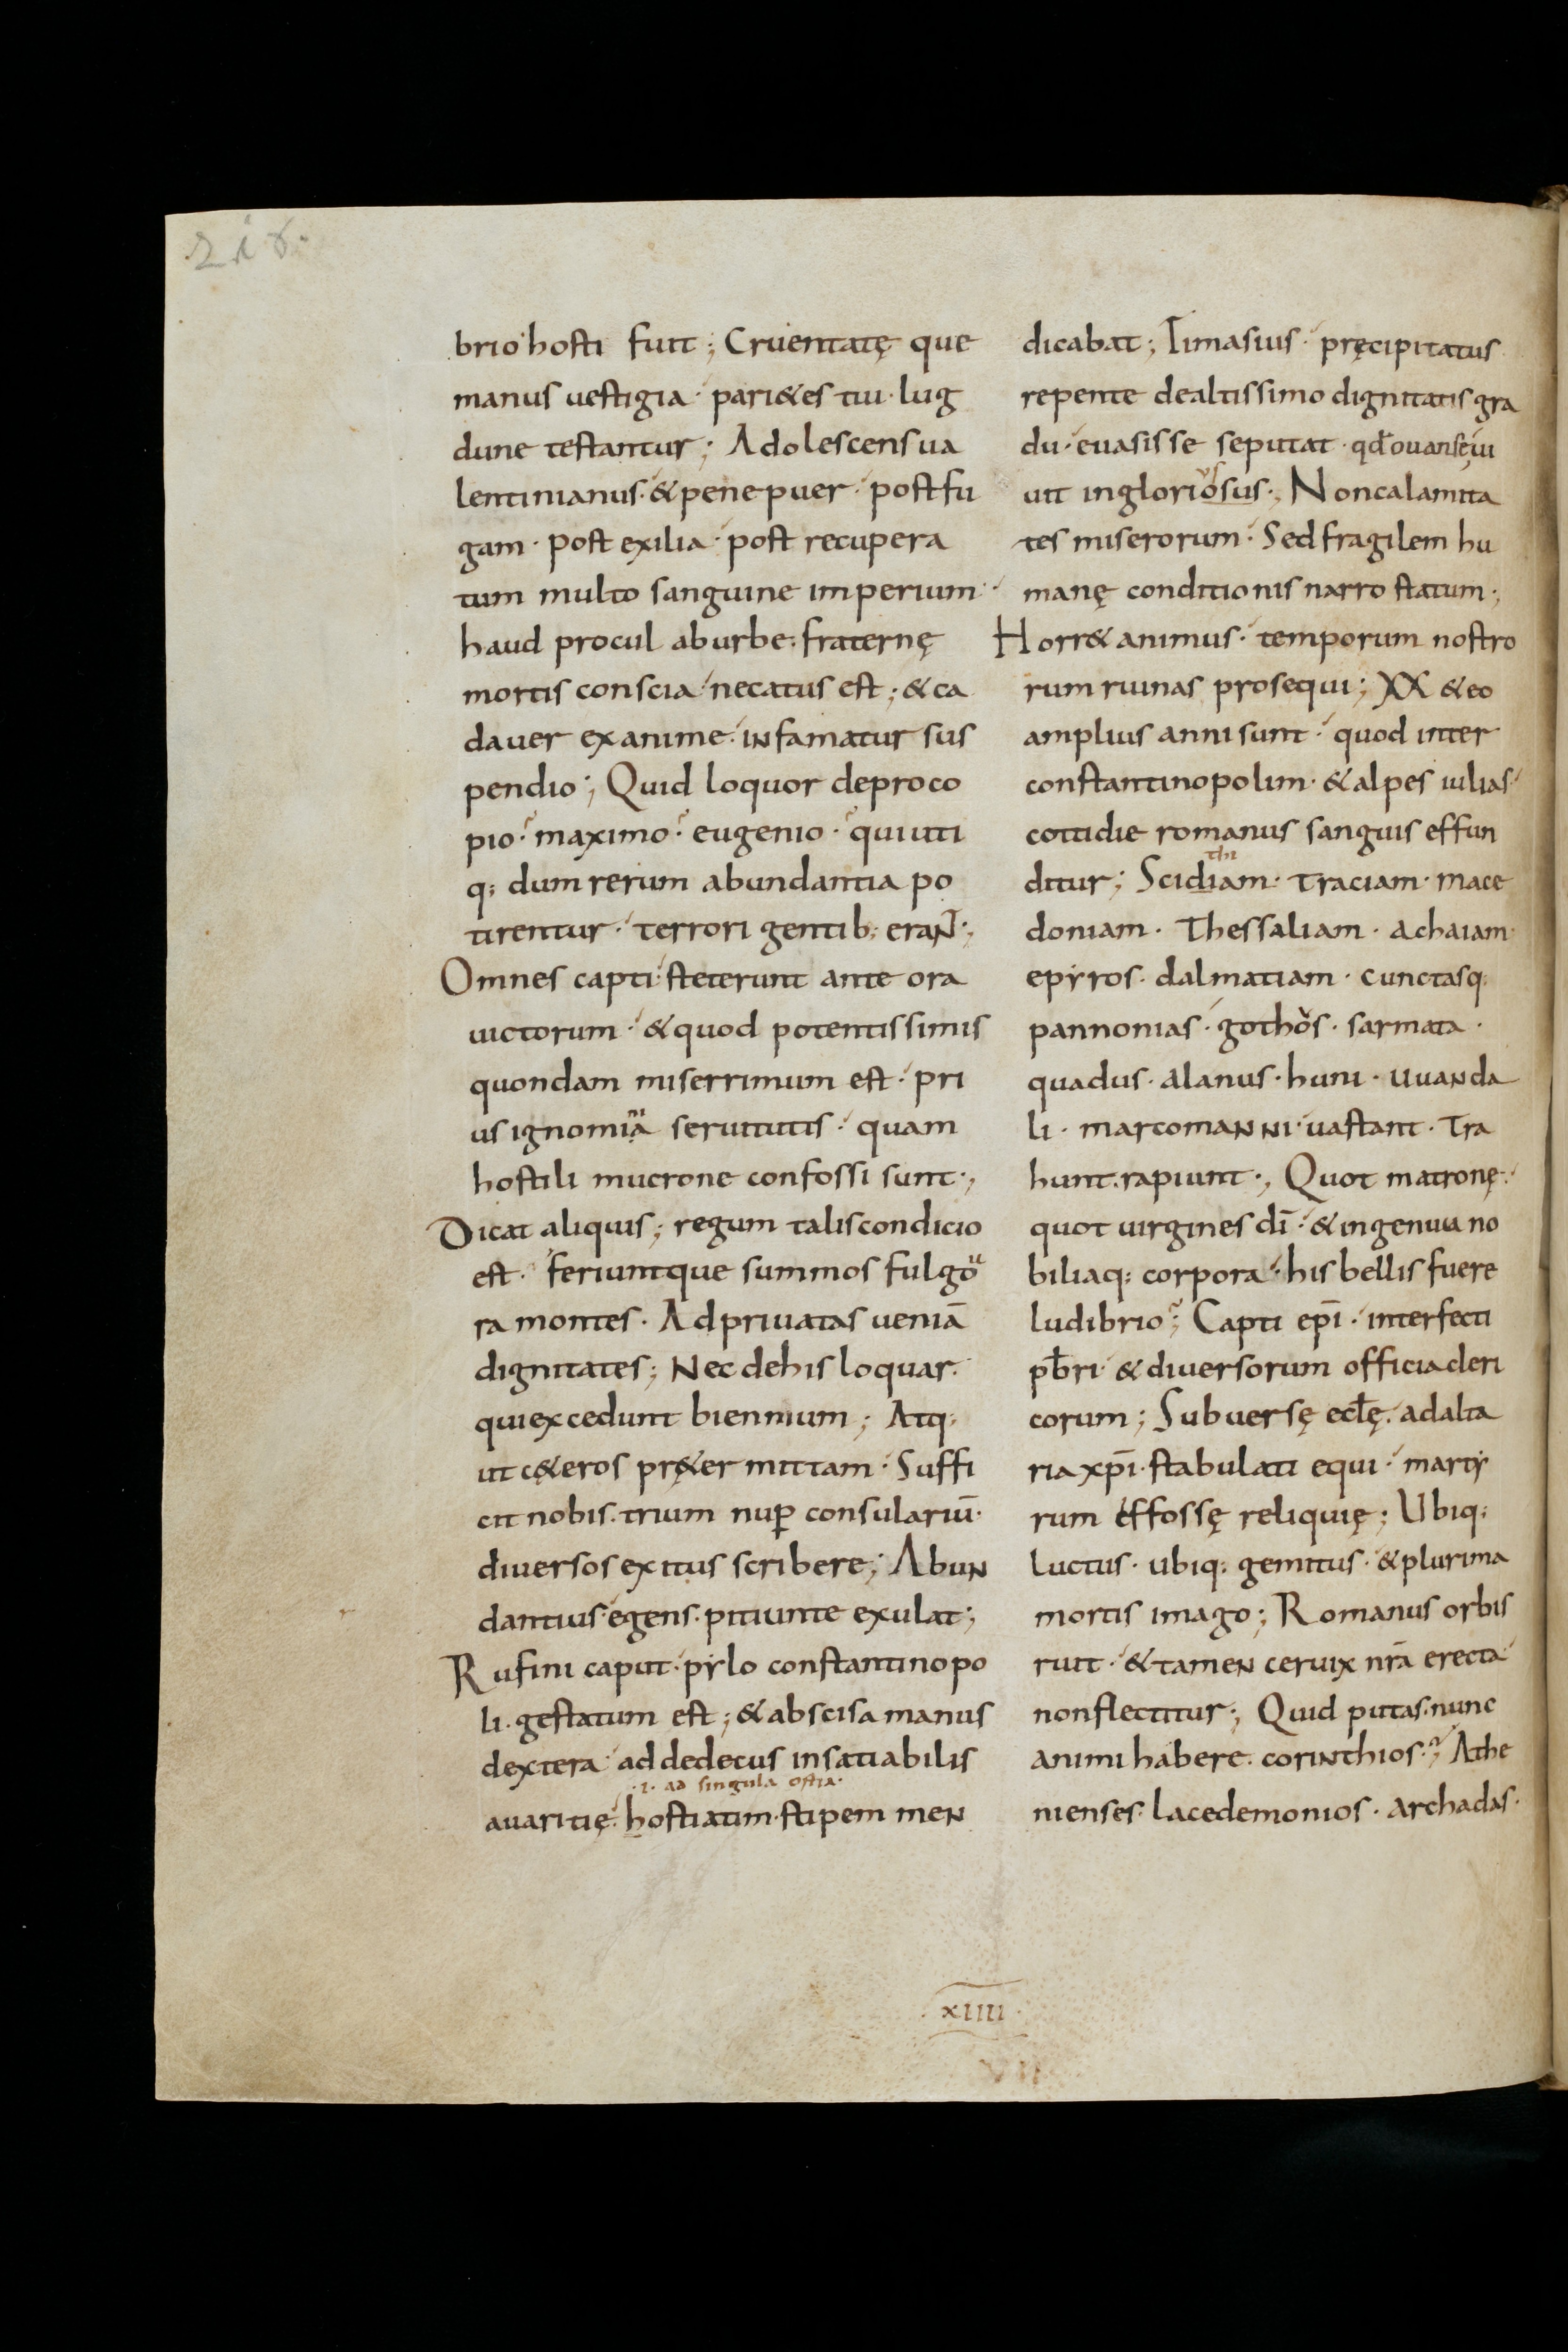 216.
brio hosti fuit; Cruentatę que
manus uestigia · pari&es tui · lug
dune testantur; Adolescens ua
lentinianus · & pene puer · post fu
gam · post exilia · post recupera
tum multo sanguine imperium ·
haud procul ab urbe · fraternę
mortis conscia necatus est; & ca
dauer exanime · infamatur sus
pendio; Quid loquor de proco
pio · maximo · eugenio · qui uti
q; dum rerum abundantia po
tirentur · terrori gentib; eraNT;
Omnes capti steterunt ante ora
uictorum · & quod potentissimis
quondam miserrimum est · pri
us ignomia seruitutis · quam
hostili mucrone confossi sunt;
Dicat aliquis; regum talis condicio
est · feriuntque summos fulgo
ra montes · Ad priuatas ueniā
dignitates; Nec de his loquar ·
qui excedunt biennium; Atq;
ut cę&eros prę&er mittam · Suffi
cit nobis · trium nuꝑ consulariū ·
diuersos exitus scribere; AbuN
dantius egens · pitiunte exulat;
Rufini caput · pẏlo constantinopo
li · gestatum est; & abscisa manus
dextera · ad dedecus insatiabilis
·i· ad singula ostia·
auaritię · hostiatim · stipem meN
dicabat; Timasius · pręcipitatus
repente de altissimo dignitatis gra
du · euasisse se putat · qđ ouanse ui
uit ingloriosus; Non calamita
tes miserorum · Sed fragilem hu
manę conditionis narro statum;
Horr& animus · temporum nostro
rum ruinas prosequi; XX & eo
amplius anni sunt · quod inter
constantinopolim · & alpes iulias
cottidie romanus sanguis effun
thi
ditur; Scidiam · Traciam · mace
doniam · Thessaliam · achaiam ·
epẏros · dalmatiam · cunctasq;
pannonias · gothos · sarmata ·
quadus · alanus · huni · uuanda
li · marcomaNNi · uastant · Tra
hunt · rapiunt; Quot matronę ·
quot uirgines dī · & ingenua no
biliaq; corpora · his bellis fuere
ludibrio; Capti epī · interfecti
pƀri & diuersorum officia cleri
corum; Subuersę eclę · ad alta
ria xpī · stabulati equi · martẏ
rum effossę reliquię; Ubiq;
luctus · ubiq; gemitus · & plurima
mortis imago; Romanus orbis
ruit · & tameN ceruix nrā erecta
non flectitur; Quid putas · nunc
animi habere · coriNthios · Athe
nienses · lacedemonios · archadas ·
xiiii
VII